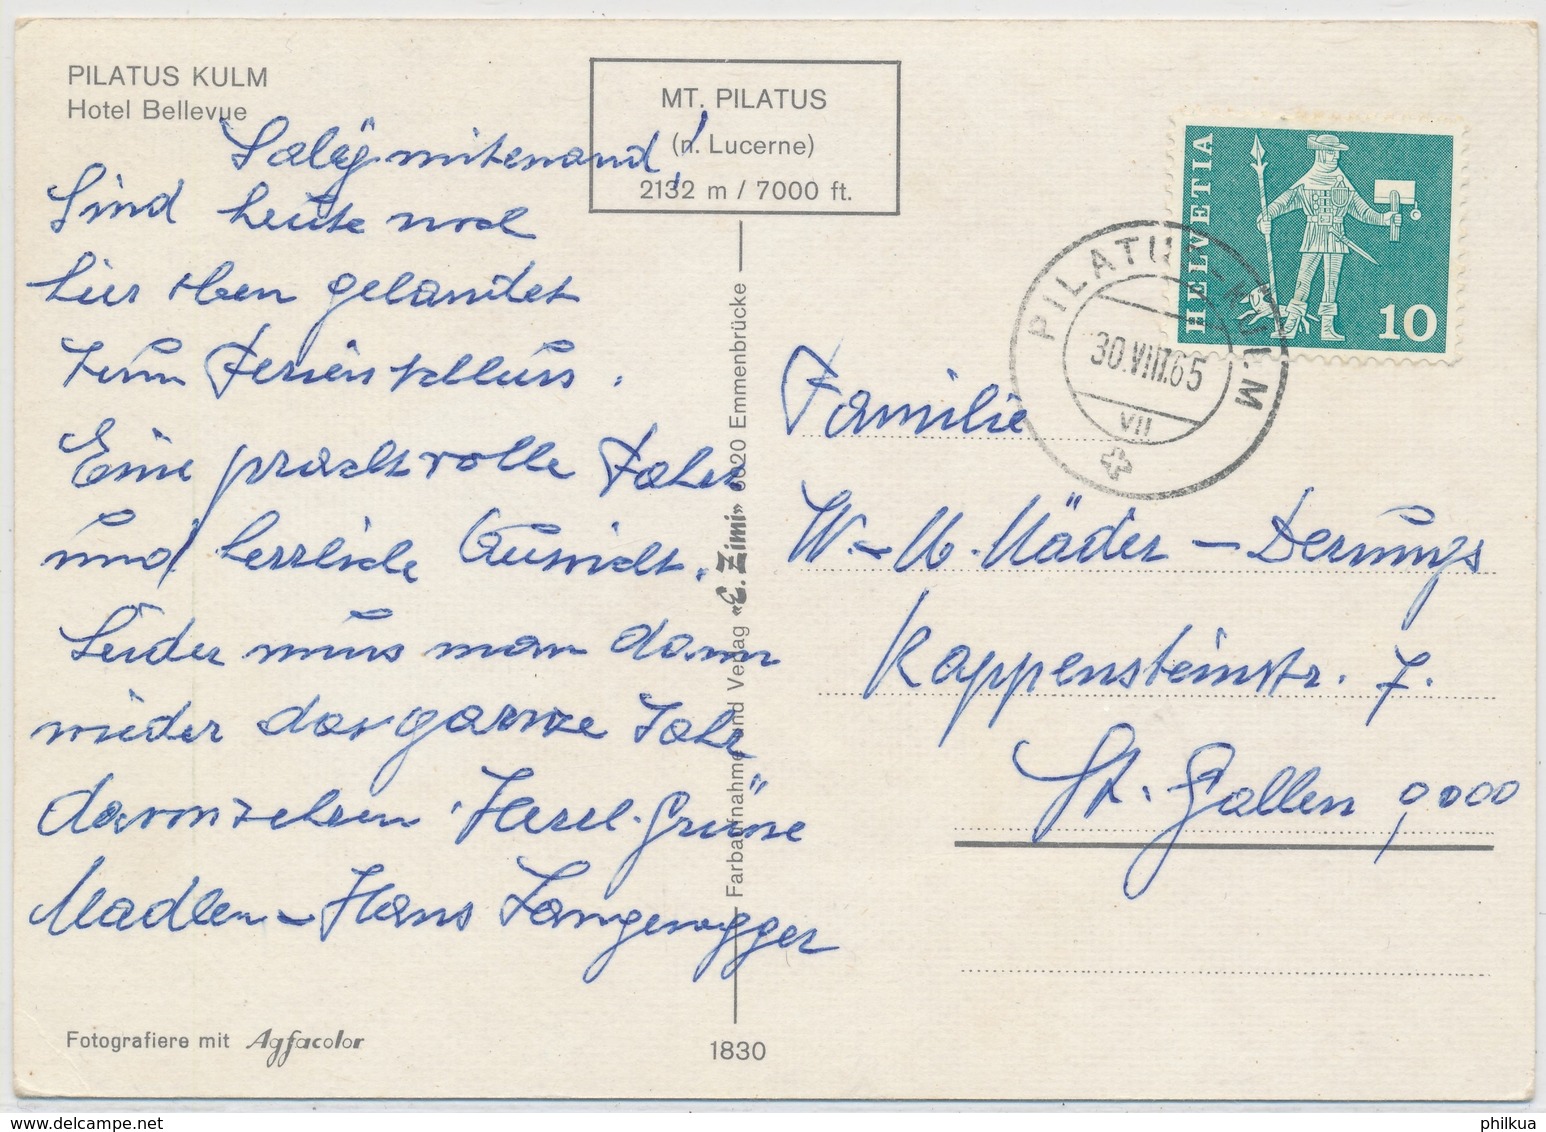 PILATUS KULM
Hotel Bellevue
MT. PILATUS
(n. Lucerne)
2132 m / 7000 ft.
HELVETIA
10
PILATUS-KULM
30.VIII.65
VII
Salü mitenand!
Sind heute noch
hier oben gelandet
zum Ferienschluss.
Eine prachtvolle Fahrt
und herrliche Aussicht.
Leider muss man dann
wieder das ganze Jahr
davon zehren. Herzl. Grüsse
Madlen - Hans Langenegger
Familie
W. - M. Mäder - Derungs
Rappensteinstr. 7.
St. Gallen, 9000
Farbaufnahme und Verlag «E. Zimi» 6020 Emmenbrücke
Fotografiere mit Agfacolor
1830
philkua
www.delcampe.net